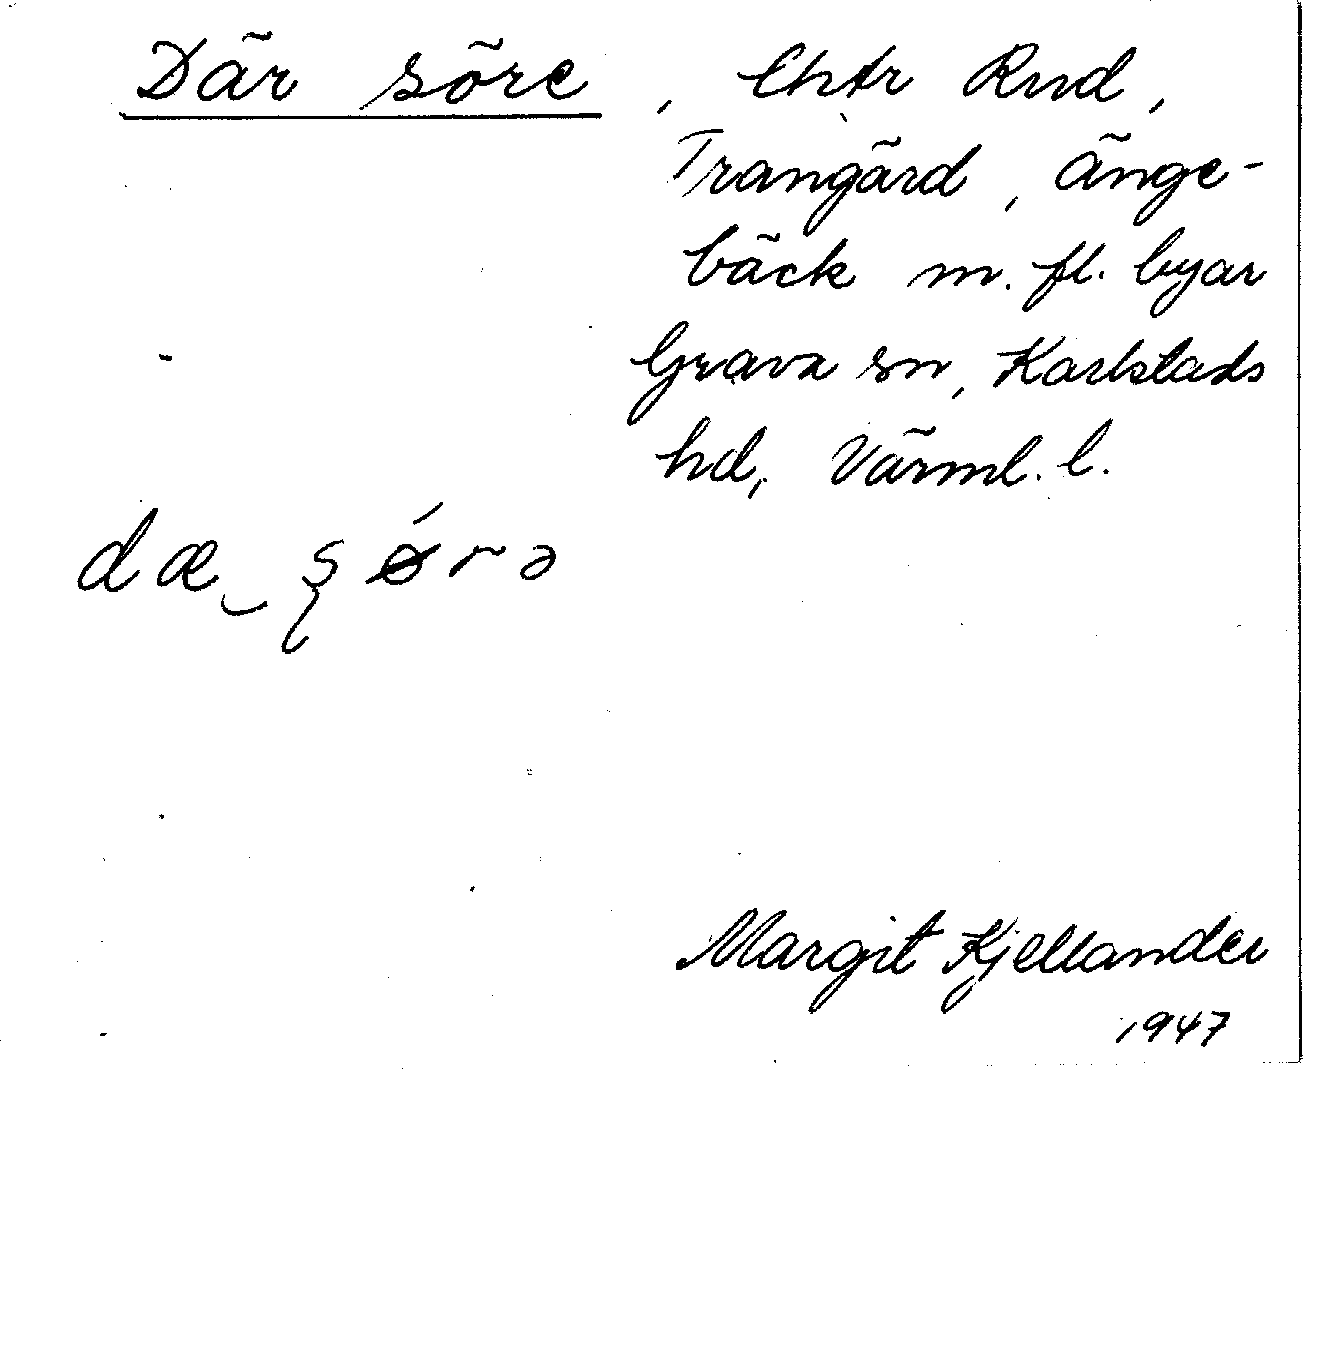 Där söre, Ehtr Rud,
Trangärd, Änge-
bäck m. fl. byar
Grava sn, Karlstads
hd, Värml. l.
dæ‿ ʂǿrə
Margit Kjellander
1947